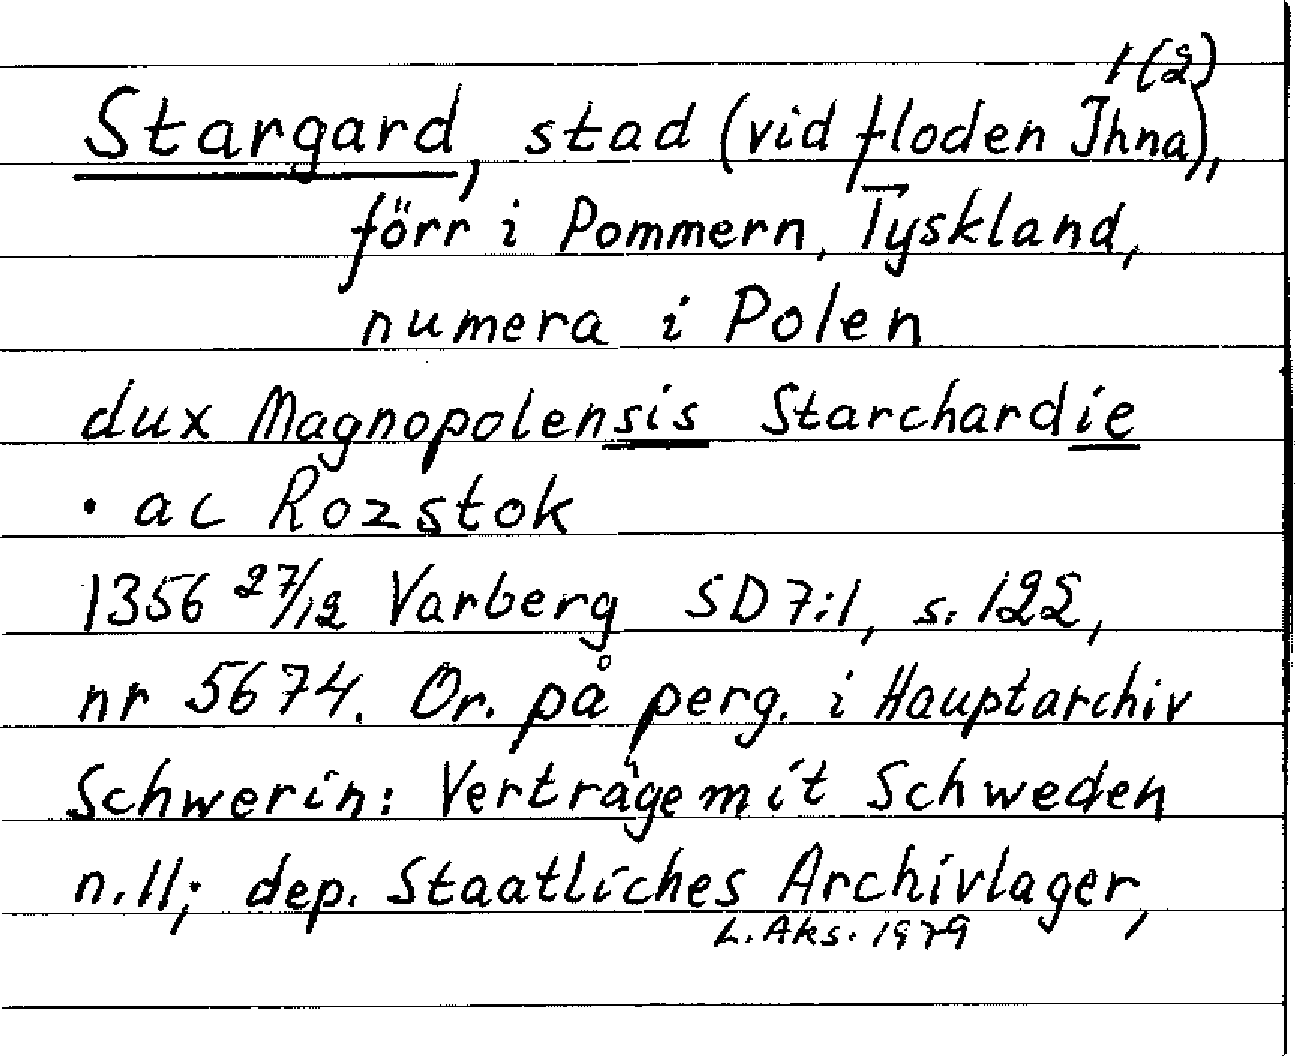 1(2)
Stargard, stad (vid floden Ihna),
förr i Pommern, Tyskland,
numera i Polen
dux Magnopolensis Starchardie
· ac Rozstok
1356 27/12 Varberg SD 7:1, s. 122,
nr 5674. Or. på perg. i Hauptarchiv
Schwerin: Verträge mit Schweden
n. 11; dep. Staatliches Archivlager,
L. Aks. 1979